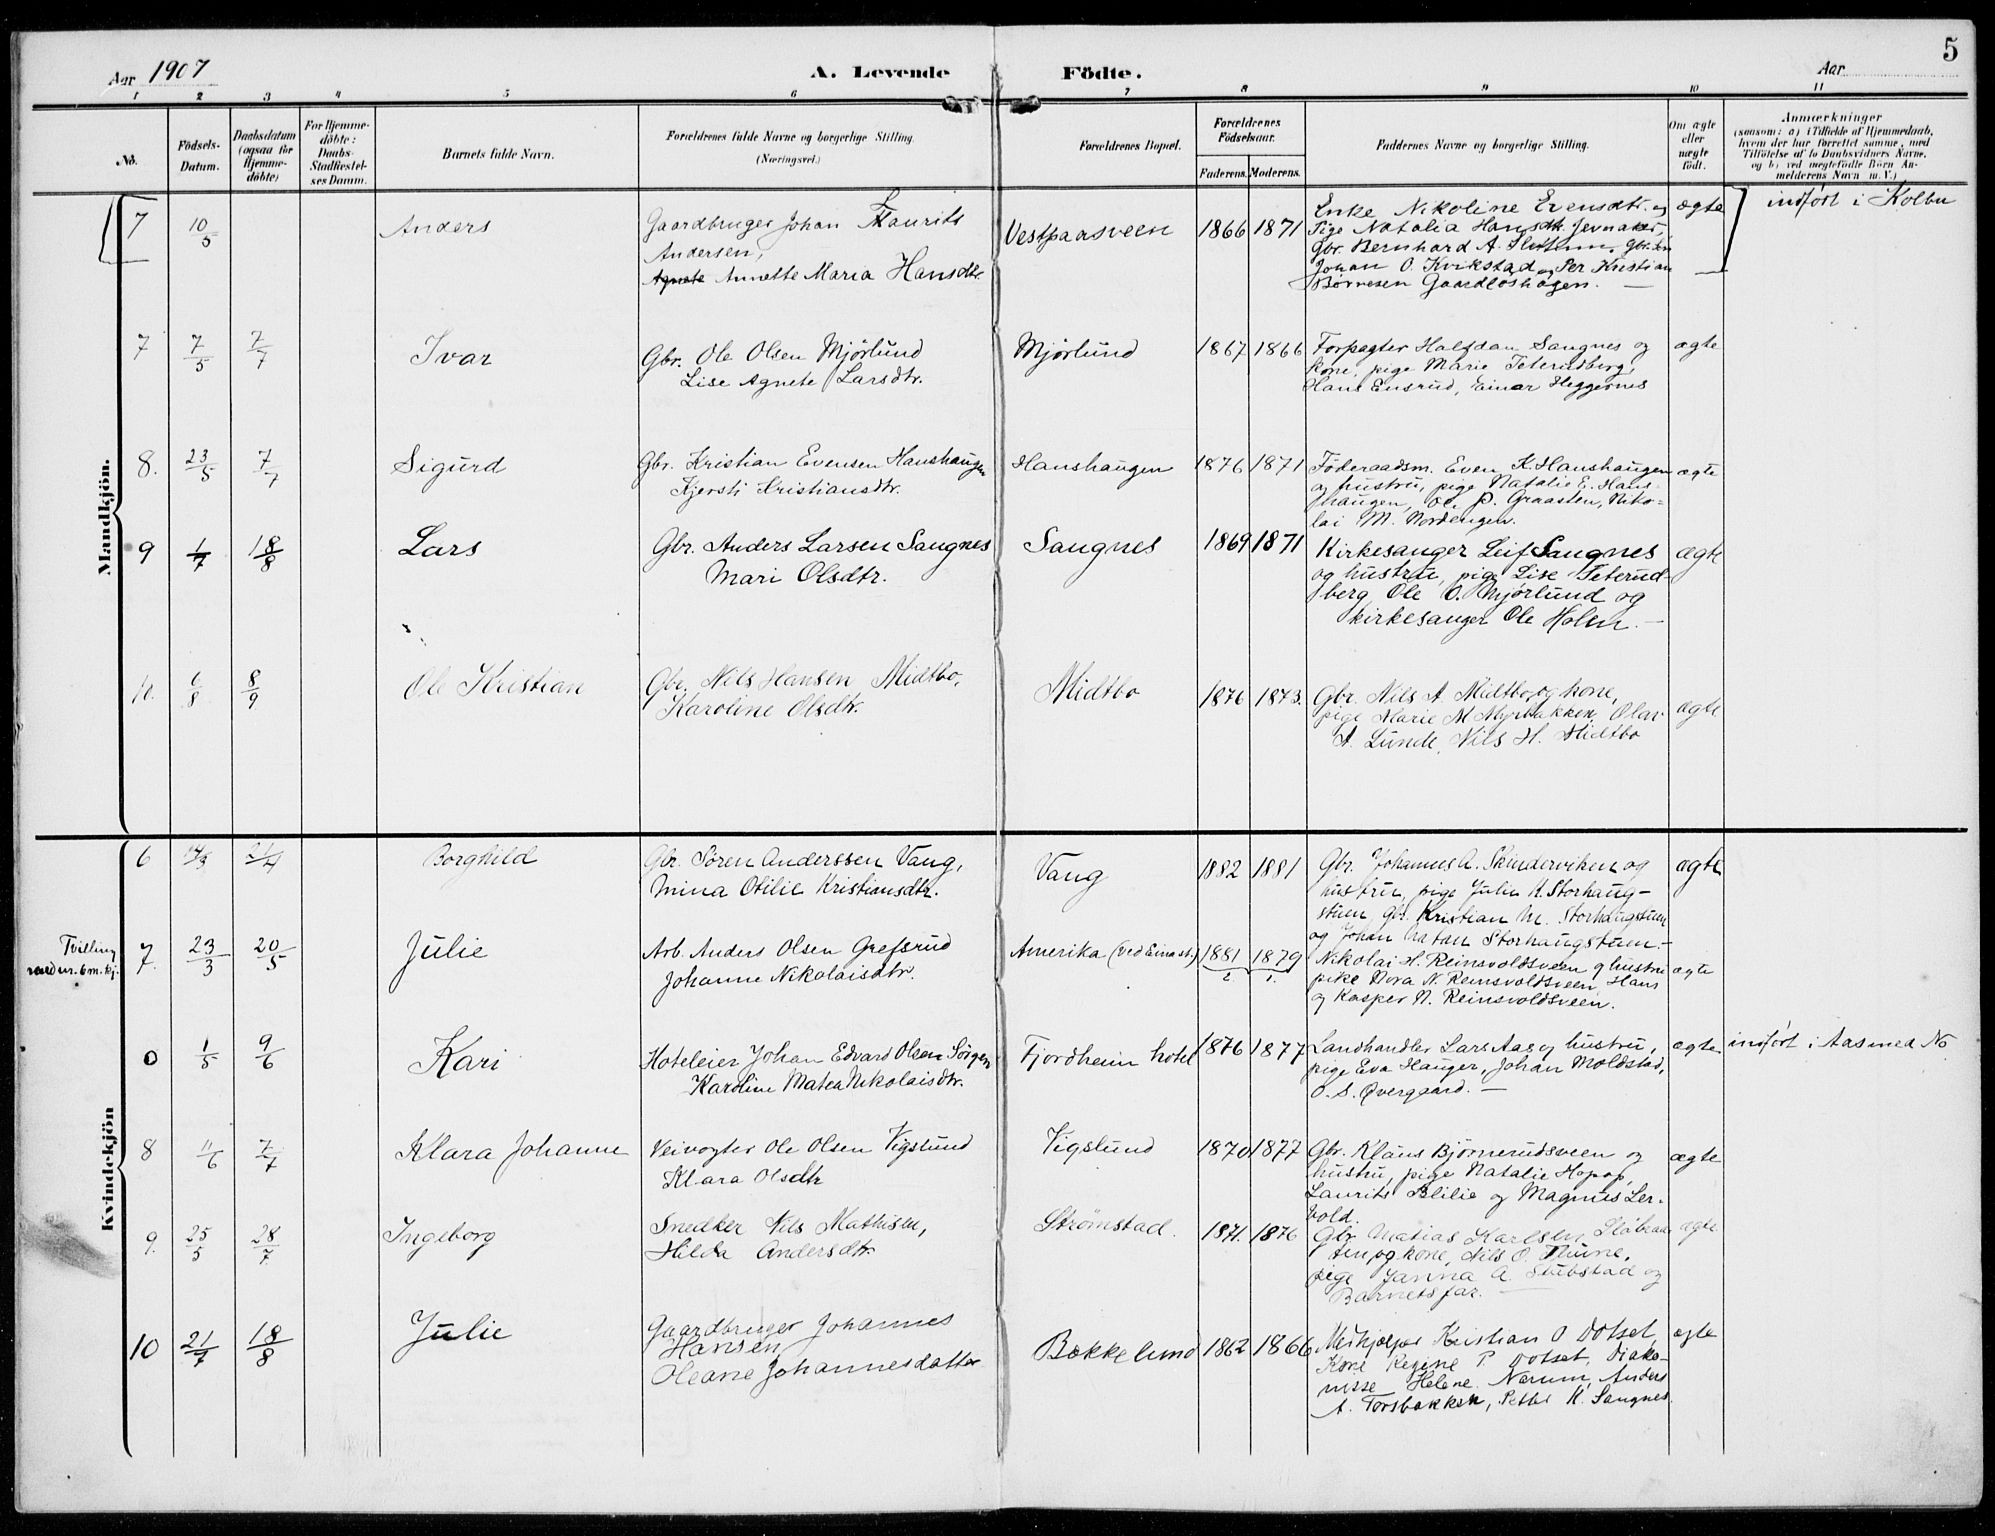 Aar 1907
A. Levende Födte.
Aar
5
1 2 3 4 5 6 7 8 9 10 11
No.
Födsels-Datum.
Daabsdatum (ogsaa for Hjemme-döbte)
For Hjemme-döbte: Daabs-Stadfæstel-ses Datum.
Barnets fulde Navn.
Forældrenes fulde Navne og borgerlige Stilling. (Næringsvei.)
Forældrenes Bopæl.
Forældrenes Födselsaar.
Faderens. Moderens.
Faddernes Navne og borgerlige Stilling.
Om ægte eller uægte födt.
Anmærkninger
(saasom: a) i Tilfælde af Hjemmedaab,
hvem der har forrettet samme, med
Tilföielse af to Daabsvidners Navne,
og b) ved uægtefödte Börn An-
melderens Navn m. V.)
Mandkjön.
7 10/5 Anders
Gaardbruger Johan Laurits
Andersen,
Agnete Annette Maria Hansdtr.
Vestpaasveen 1866 1871
Enke Nikoline Evensdtr. og
Pige Natalia Hansdtr. Jevnaker,
Gbr. Bernhard A.
Johan O. Kvikstad og Per Kristian
Børresen Gaardløshagen. —
ægte
indført i Kolbu
7 7/5 7/7 Ivar
Gbr. Ole Olsen Mjørlund
Lise Agnete Larsdtr.
Mjørlund 1867 1866
Forpagter Halfdan Sangnes og
kone, pige Marie Teterudberg,
Hans Ensrud, Einar Heggernes
ægte
8. 23/5 7/7 Sigurd
Gbr. Kristian Evensen Hanshaugen
Kjersti Kristiansdtr.
Hanshaugen 1876 1871
Föderaadsm. Even K. Hanshaugen
og hustru, pige Natalie E. Hans-
haugen, Ol. P. Graasten, Niko-
lai M. Nordengen.
ægte
9 1/7 18/8 Lars
Gbr. Anders Larsen Sangnes
Mari Olsdtr.
Sangnes 1869 1871
Kirkesanger Leif Sangnes
og hustru, pige Lise Teterud-
berg Ole O. Mjørlund og
kirkesanger Ole Holm. —
ægte
10. 6/8 8/9 Ole Kristian
Gbr. Nils Hansen Midtbo,
Karoline Olsdtr.
Midtbo 1876 1873.
Gbr. Nils A. Midtbo, og kone,
pige Marie M Myrbakken, Olav
A. Lunde, Nils H. Midtbo
ægte
Kvindekjön
6 14/3 21/4 Borghild
Gbr. Sören Anderssen Vang,
Mina Otilie Kristiansdtr.
Vang 1882 1881
Gbr. Johannes A. Skinderviken og
hustru, pige Julie K. Storhaug-
stuen, gbr. Kristian M. Storhaugstuen
og Johan Natan Storhaugstuen. —
ægte
Tvilling
med nr. 6 m. kj.
7. 23/3 20/5 Julie
Arb. Anders Olsen Grefsrud
Johanne Nikolaisdtr.
Amerika (ved Eina st.) 1881 1879
2. 1.
Nikolai H. Reinsvoldsveen og hustru
pike Dora N. Reinsvoldsveen, Hans
og Kasper N. Reinsvoldsveen.
ægte
0 1/5 9/6 Kari
Hoteleier Johan Edvard Olsen Sörgen
Karoline Matea Nikolaisdtr.
Fjordheim hotel 1876 1877
Landhandler Lars Aas og hustru,
pige Eva Hauger, Johan Moldstad,
O. S. Øvergaard. —
ægte
indført i Aas med No
8 11/6 7/7 Klara Johanne
Veivogter Ole Olsen Vigslund
Klara Olsdtr
Vigslund 1870 1877
Gbr. Klaus Bjørnerudsveen og
hustru, pige Natalie Hopop,
Laurits Blilie og Magnus Ler-
vold.
ægte
9. 25/5 28/7 Ingeborg
Snedker Nils Mathisen,
Hilda Andersdtr.
Strømstad. 1871. 1876
Gbr. Matias Karlsen Sløbraa-
ten og kone, Nils O. Thune,
pige Janna A. Stubstad og
Barnets far. —
ægte
10 21/7 18/8 Julie
Gaardbruger Johannes
Hansen,
Oleane Johannesdatter
Bækkelund 1862 1866
Medhjælper Kristian O Dotset,
Kone Regine P. Dotset, Diako-
nisse Helene Narum, Anders
A. Torsbakken, Petter K. Sangnes.
ægte